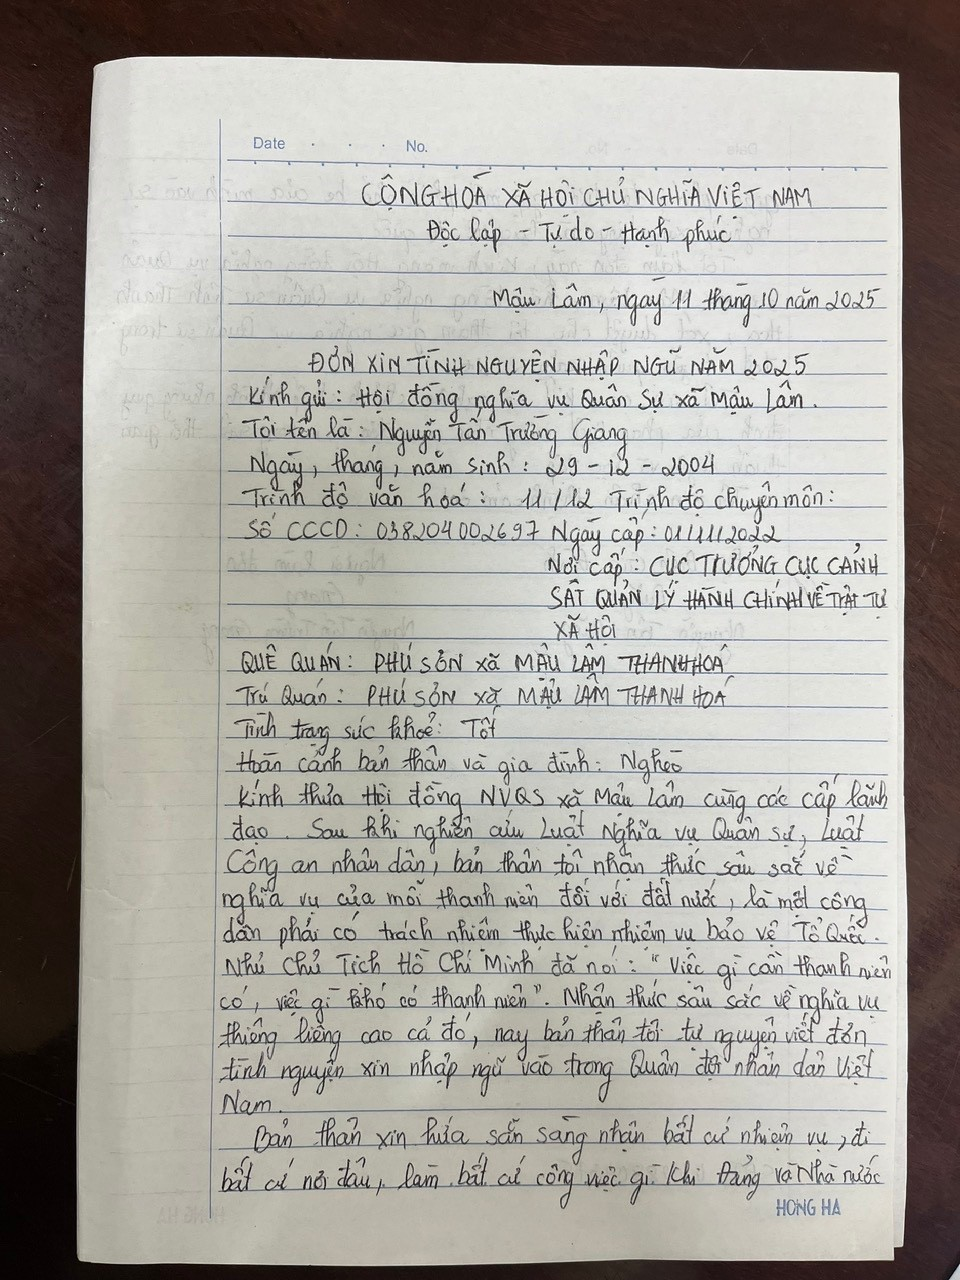 Date . . . No.
CỘNG HOÁ XÃ HỘI CHỦ NGHĨA VIỆT NAM
Độc lập - Tự do - Hạnh phúc
Mậu Lâm, ngày 11 tháng 10 năm 2025
ĐƠN XIN TÌNH NGUYỆN NHẬP NGŨ NĂM 2025
Kính gửi: Hội đồng nghĩa vụ Quân Sự xã Mậu Lâm.
Tôi tên là: Nguyễn Tân Trường Giang
Ngày, tháng, năm sinh: 29-12-2004
Trình độ văn hoá: 11/12 Trình độ chuyên môn:
Số CCCD: 038204002697 Ngày cấp: 01/11/2022
Nơi cấp: CỤC TRƯỞNG CỤC CẢNH
SÁT QUẢN LÝ HÀNH CHÍNH VỀ TRẬT TỰ
XÃ HỘI
QUÊ QUÁN: PHÚ SƠN xã MẬU LÂM THANH HOÁ
Trú Quán: PHÚ SƠN xã MẬU LÂM THANH HOÁ
Tình trạng sức khoẻ: Tốt
Hoàn cảnh bản thân và gia đình: Nghèo
Kính thưa Hội đồng NVQS xã Mậu Lâm cùng các cấp lãnh
đạo. Sau khi nghiên cứu Luật Nghĩa vụ Quân sự, Luật
Công an nhân dân, bản thân tôi nhận thức sâu sắc về
nghĩa vụ của mỗi thanh niên đối với đất nước, là một công
dân phải có trách nhiệm thực hiện nhiệm vụ bảo vệ Tổ Quốc.
Như Chủ Tịch Hồ Chí Minh đã nói: "Việc gì cần thanh niên
có, việc gì khó có thanh niên". Nhận thức sâu sắc về nghĩa vụ
thiêng liêng cao cả đó, nay bản thân tôi tự nguyện viết đơn
tình nguyện xin nhập ngũ vào trong Quân đội nhân dân Việt
Nam.
Bản thân xin hứa sẵn sàng nhận bất cứ nhiệm vụ, đi
bất cứ nơi đâu, làm bất cứ công việc gì khi Đảng và Nhà nước
HONG HA